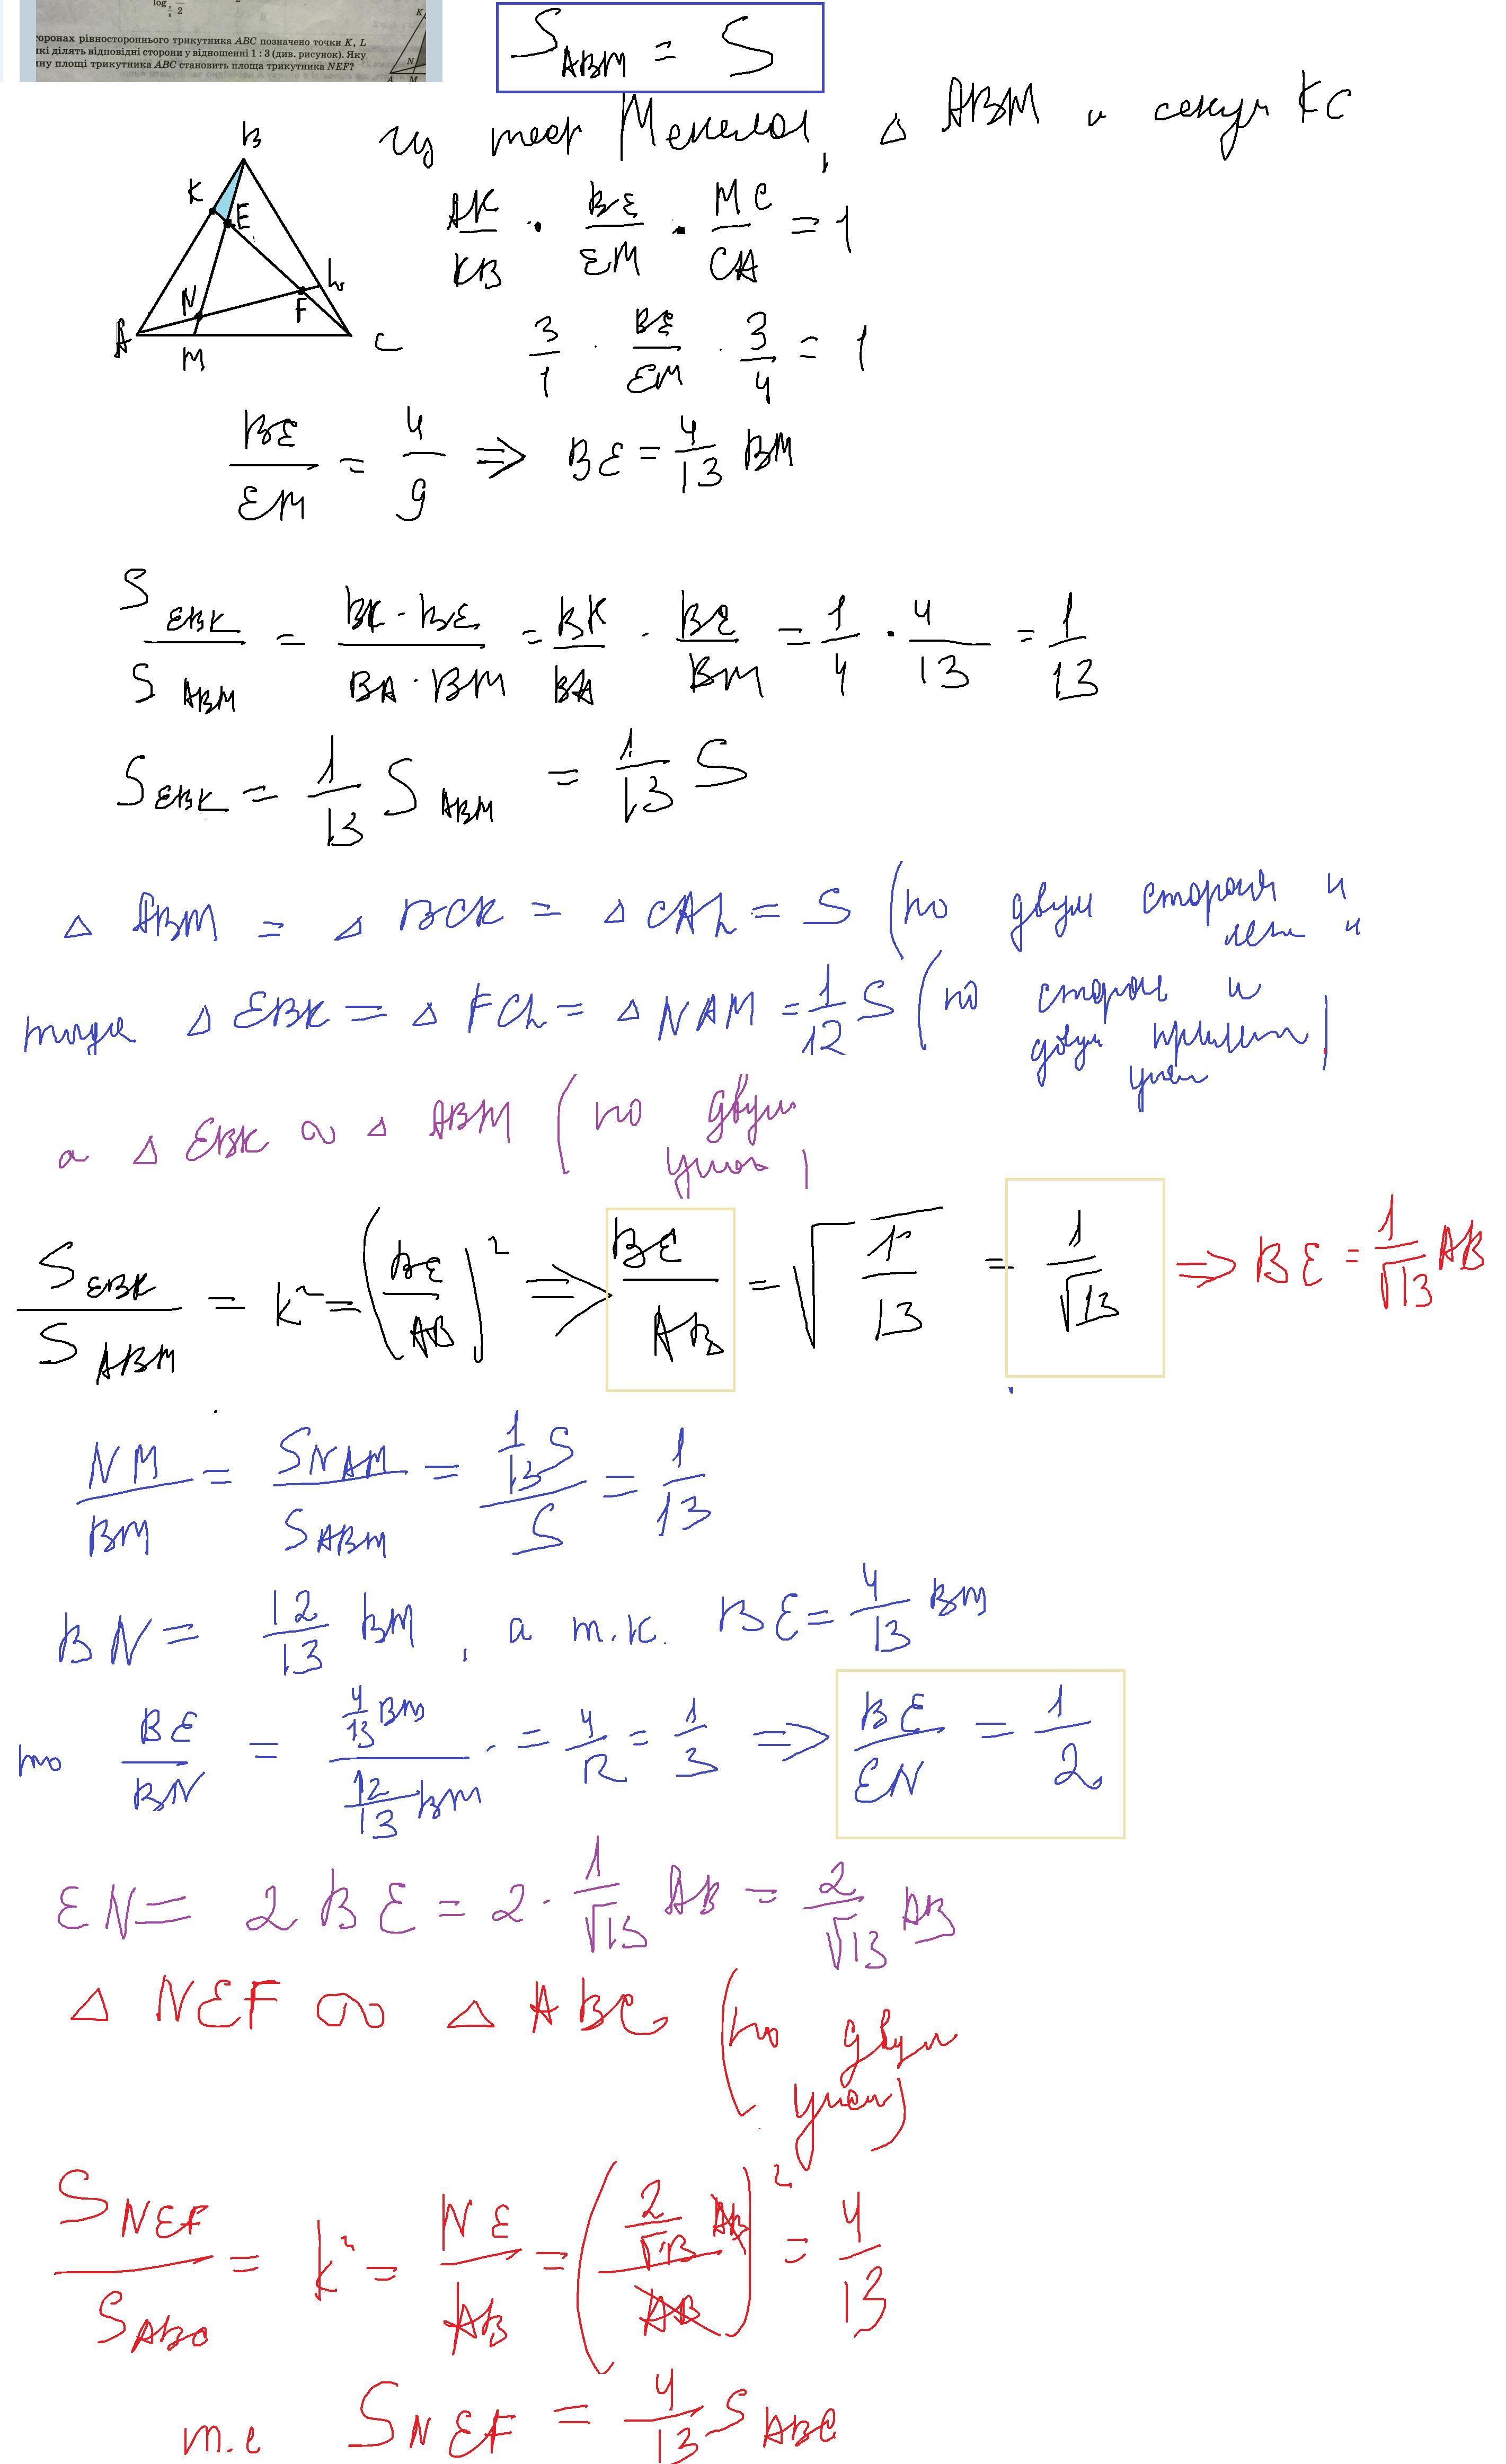 log
2
торонах рівностороннього трикутника ABC позначено точки K, L
які ділять відповідні сторони у відношенні 1 : 3 (див. рисунок). Яку
ину площі трикутника ABC становить площа трикутника NEF?
K
N
A M
S ABM = S
из теор Менелая, △ ABM и секущ KC
B
K
E
N
F
L
A
M
C
AK/KB · BE/EM · MC/CA = 1
3/1 · BE/EM · 3/4 = 1
BE/EM = 4/9 => BE = 4/13 BM
S EBK / S ABM = BK · BE / BA · BM = BK/BA · BE/BM = 1/4 · 4/13 = 1/13
S EBK = 1/13 S ABM = 1/13 S
△ ABM = △ BCK = △ CAL = S (по двум сторонам и
тогда △ EBK = △ FCL = △ NAM = 1/12 S (по стороне и
двум прилеж)
углам
а △ EBK ∾ △ ABM (по двум
углам)
S EBK / S ABM = k² = (BE/AB)² => BE/AB = √1/13 = 1/√13 => BE = 1/√13 AB
NM/BM = S NAM / S ABM = 1/13 S / S = 1/13
BN = 12/13 BM, а т.к. BE = 4/13 BM
то BE/BN = 4/13 BM / 12/13 BM = 4/12 = 1/3 => BE/EN = 1/2
EN = 2 BE = 2 · 1/√13 AB = 2/√13 AB
△ NEF ∾ △ ABC (по двум
углам)
S NEF / S ABC = k² = NE/AB = (2/√13 AB / AB)² = 4/13
т.е S NEF = 4/13 S ABC